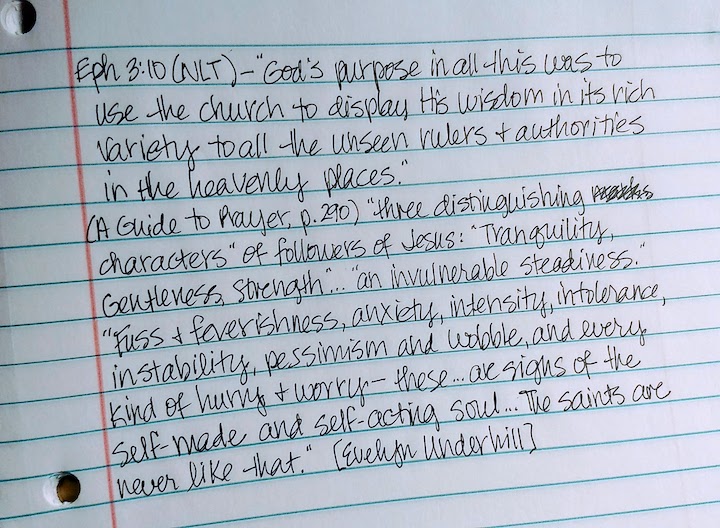 Eph 3:10 (NLT) - "God's purpose in all this was to
use the church to display His wisdom in its rich
variety to all the unseen rulers + authorities
in the heavenly places."
(A Guide to Prayer, p. 290) "three distinguishing
characters" of followers of Jesus: "Tranquility,
Gentleness, Strength"... "an invulnerable steadiness."
"Fuss + feverishness, anxiety, intensity, intolerance,
instability, pessimism and wobble, and every
kind of hurry + worry - these... are signs of the
self-made and self-acting soul... The saints are
never like that." [Evelyn Underhill]